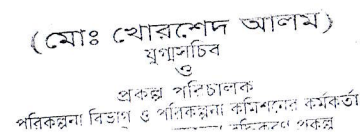 (মোঃ খোরশেদ আলম)
যুগ্মসচিব
ও
প্রকল্প পরিচালক
পরিকল্পনা বিভাগ ও পরিকল্পনা কমিশনের কর্মকর্তা
প্রকল্প